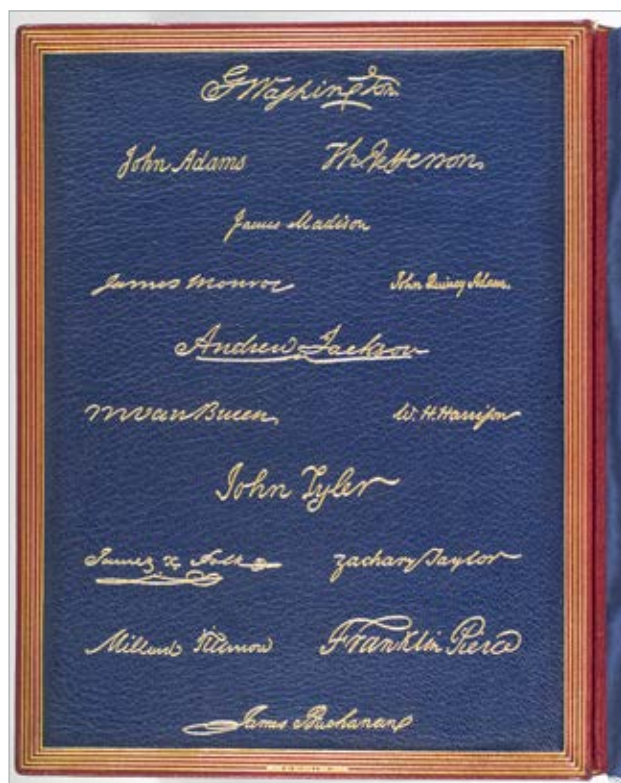 G Washington
John Adams Th Jefferson
James Madison
James Monroe John Quincy Adams.
Andrew Jackson
M Van Buren W. H. Harrison
John Tyler
James K Polk Zachary Taylor
Millard Fillmore Franklin Pierce
James Buchanan